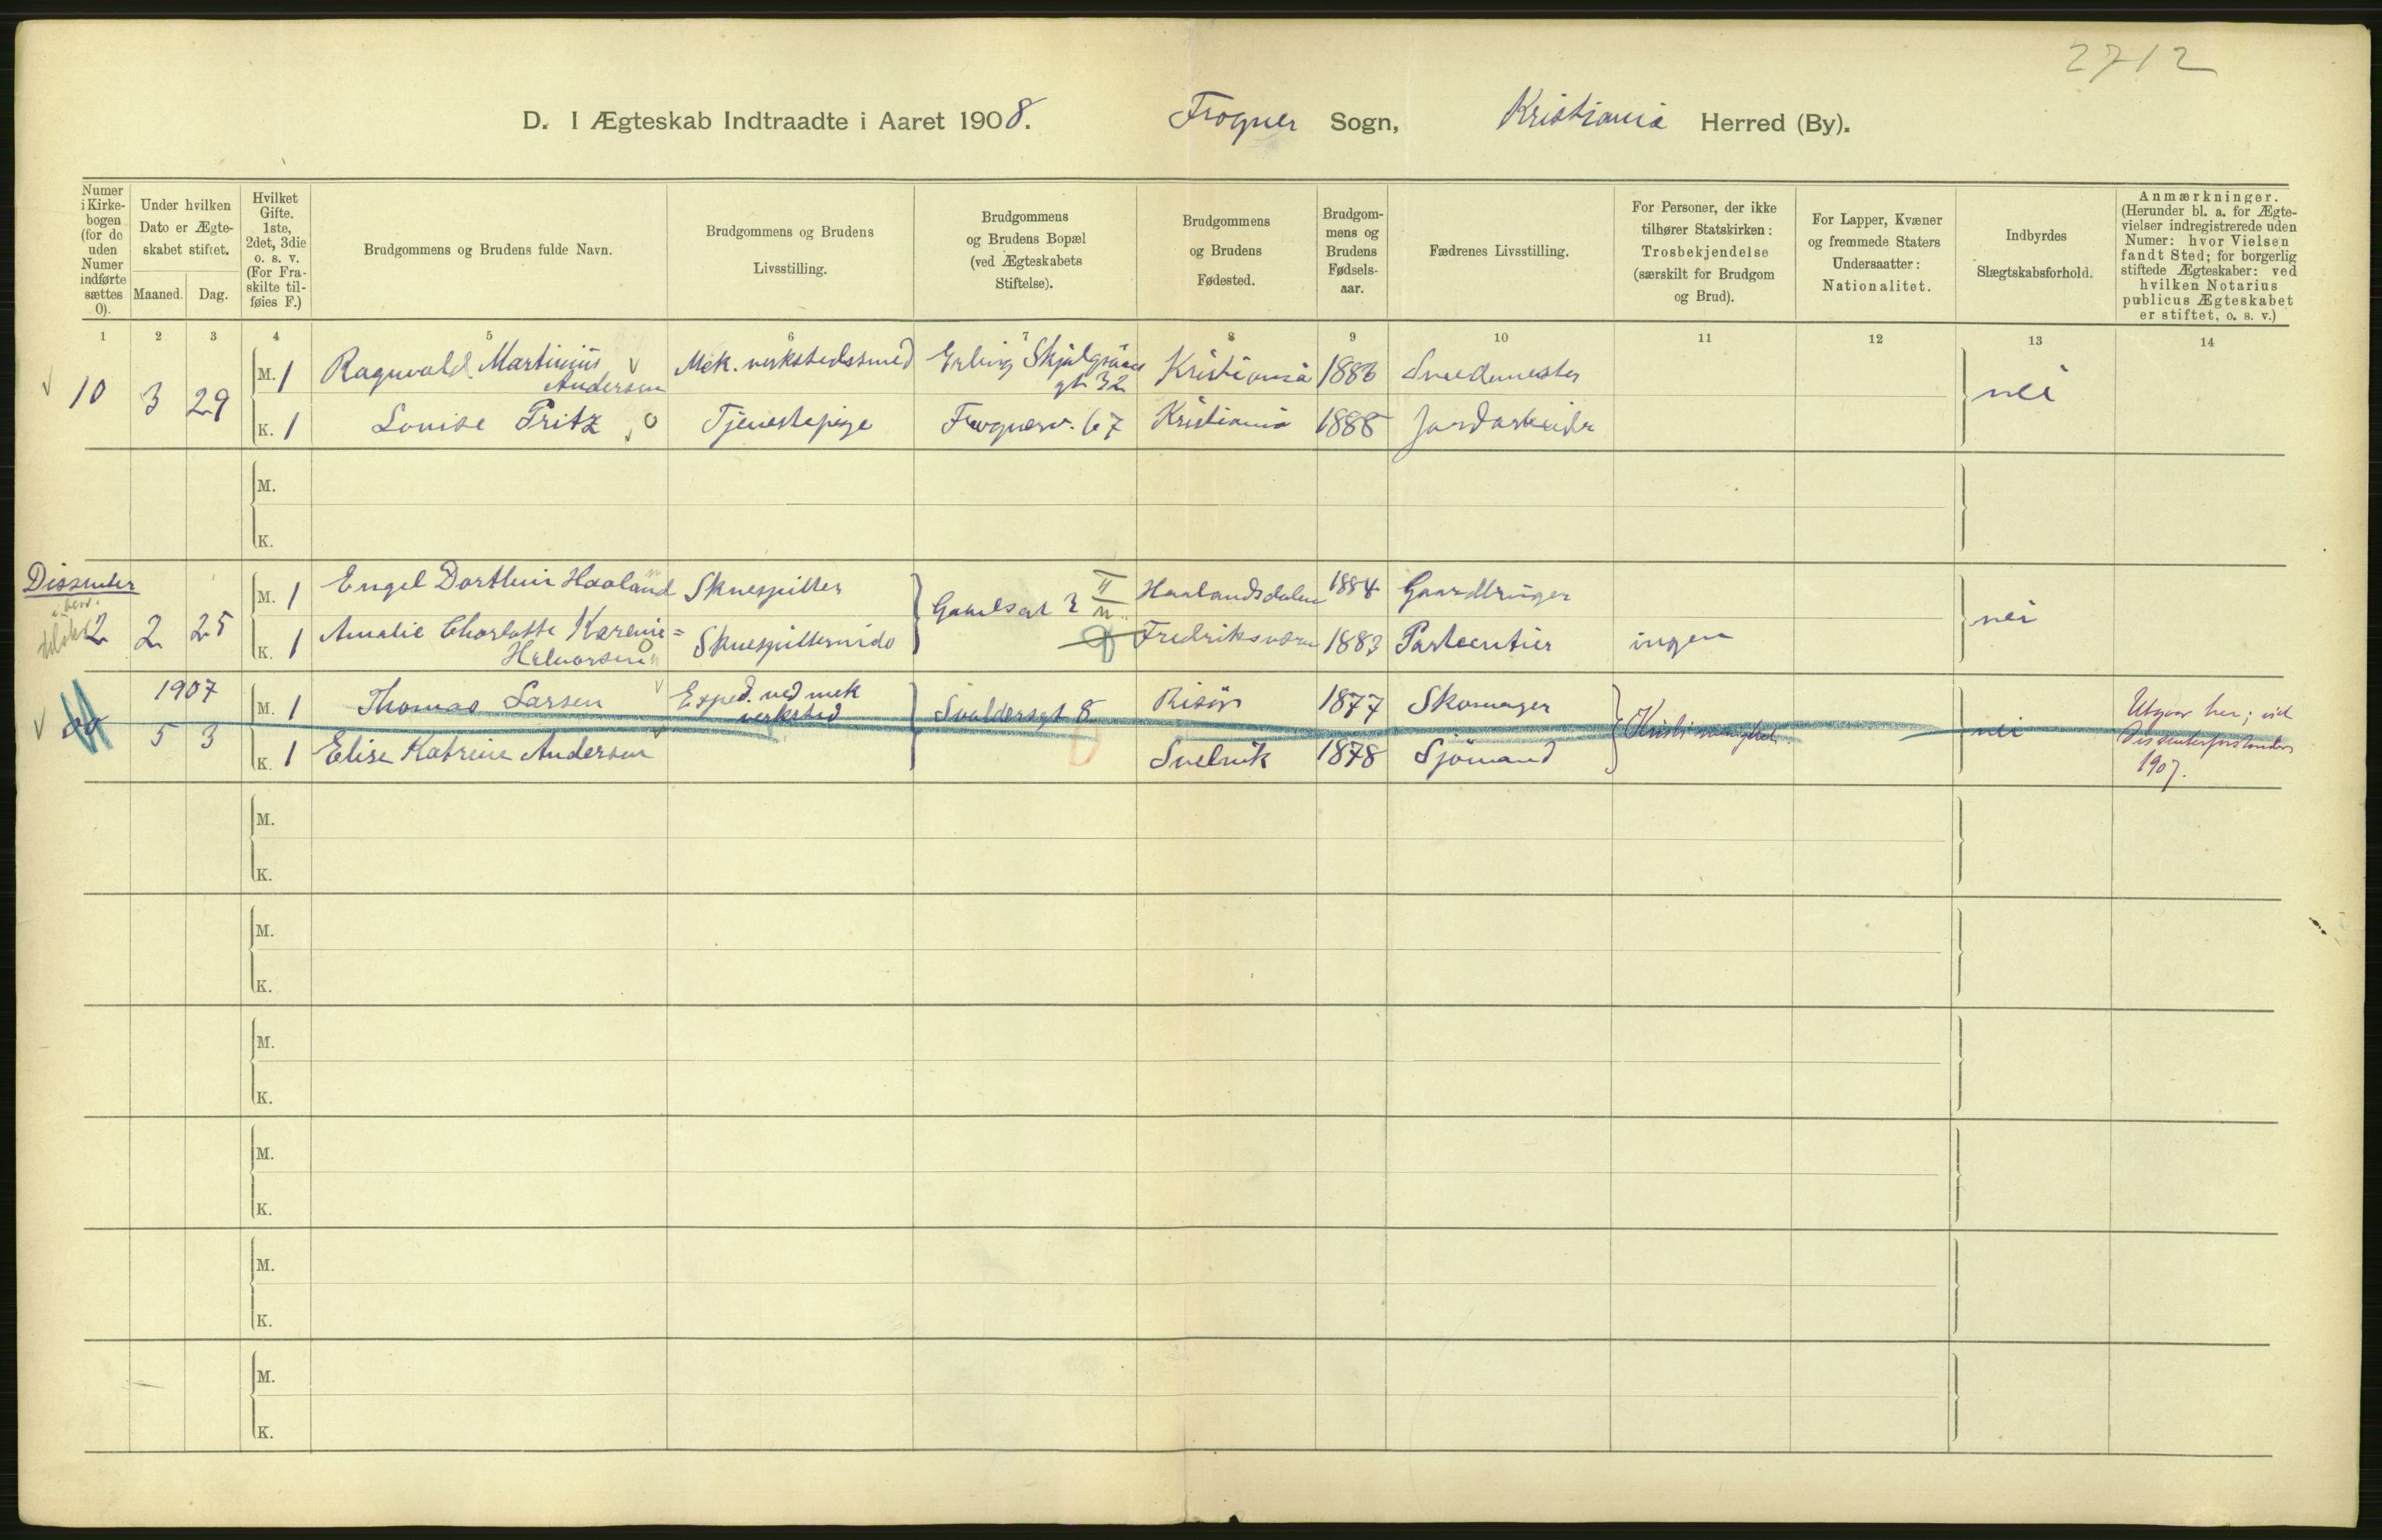 2712
D. I Ægteskab Indtraadte i Aaret 1908. Frogner Sogn, Kristiania Herred (By).
Numer i Kirke-bogen (for de uden Numer indførte sættes 0).
Under hvilken Dato er Ægte-skabet stiftet.
Maaned. Dag.
Hvilket Gifte. 1ste, 2det, 3die o. s. v. (For Fra-skilte til-føies F.)
Brudgommens og Brudens fulde Navn.
Brudgommens og Brudens Livsstilling.
Brudgommens og Brudens Bopæl (ved Ægteskabets Stiftelse).
Brudgommens og Brudens Fødested.
Brudgom-mens og Brudens Fødsels-aar.
Fædrenes Livsstilling.
For Personer, der ikke tilhører Statskirken: Trosbekjendelse (særskilt for Brudgom og Brud).
For Lapper, Kvæner og fremmede Staters Undersaatter: Nationalitet.
Indbyrdes Slægtskabsforhold.
Anmærkninger. (Herunder bl. a. for Ægte-vielser indregistrerede uden Numer: hvor Vielsen fandt Sted; for borgerlig stiftede Ægteskaber: ved hvilken Notarius publicus Ægteskabet er stiftet, o. s. v.)
1 2 3 4 5 6 7 8 9 10 11 12 13 14
10 3 29 M. 1 Ragnvald Martinius Andersen Mek. verkstedssmed Erling Skjalgsøns gt 32 Kristiania 1886 Smedemester nei
K. 1 Louise Fritz Tjenestepige Frognerv. 67 Kristiania 1888 Jordarbeider
M.
K.
Dissenter
2 2 25 M. 1 Engel Dorthin Haaland Skuespiller II Haalandsdalen 1884 Gaardbruger nei
K. 1 Amalie Charlotte Karenie= Halvorsen Skuespillerinde Fredriksværn 1883 Partecutier ingen
1907
00 5 3 M. 1 Thomas Larsen Exped. ved mek verksted Svoldersgt 8 Risør 1877 Skomager nei Utgaar her; vid Dissenterforstander 1907.
K. 1 Elise Katrine Andersen Svelvik 1878 Sjømand
M.
K.
M.
K.
M.
K.
M.
K.
M.
K.
M.
K.